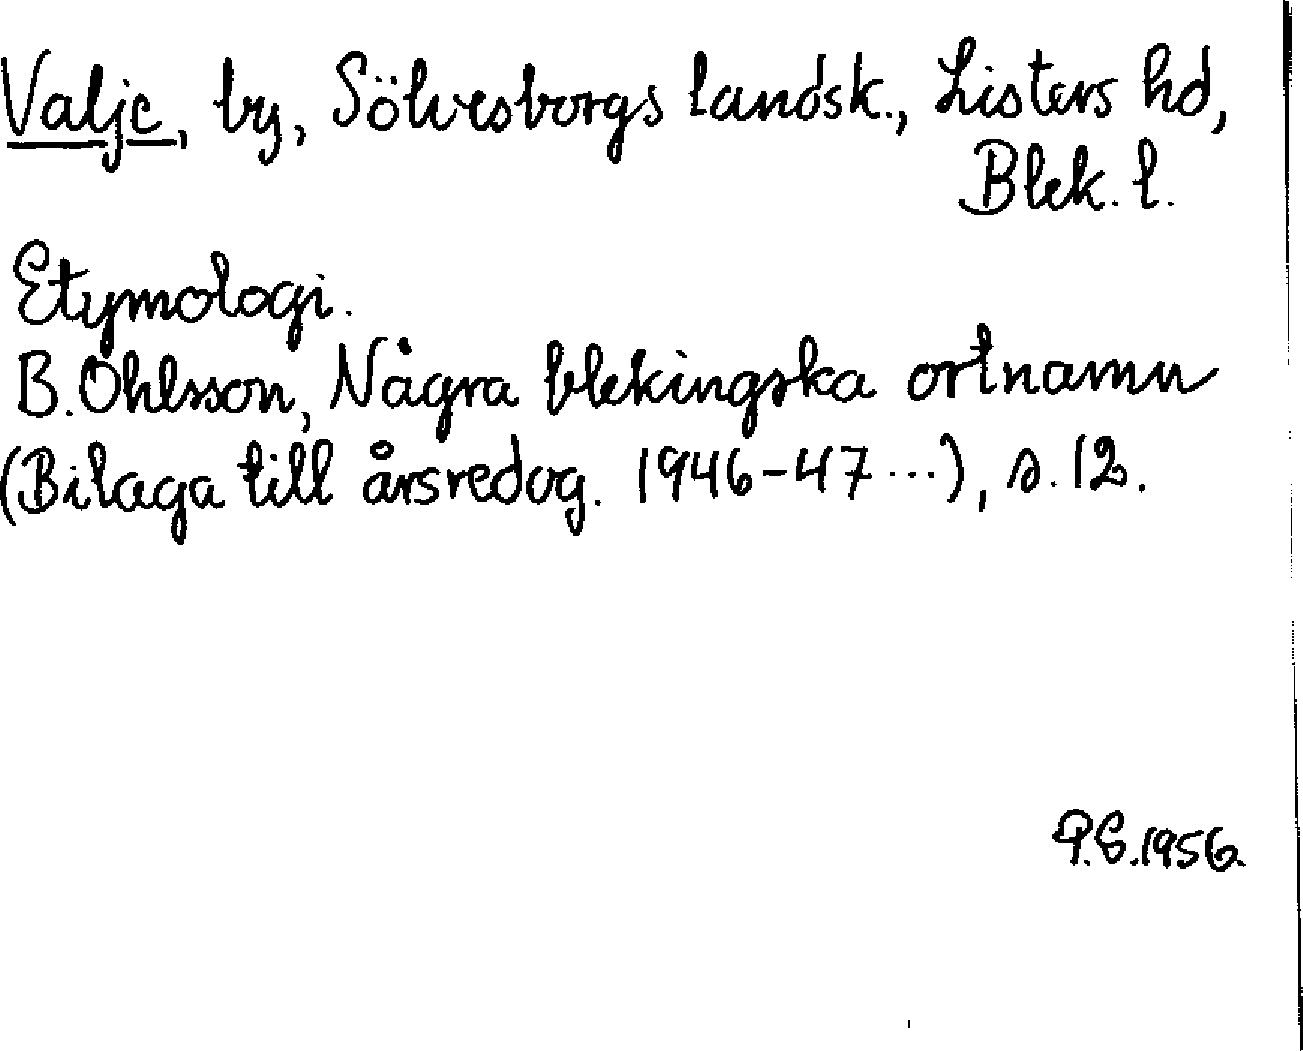 Valje, by, Sölvesborgs landsk., Listers hd,
Blek. l.
Etymologi.
B. Ohlsson, Några blekingska ortnamn
(Bilaga till årsredog. 1946-47 ...), s. 12.
P.S. 1956.